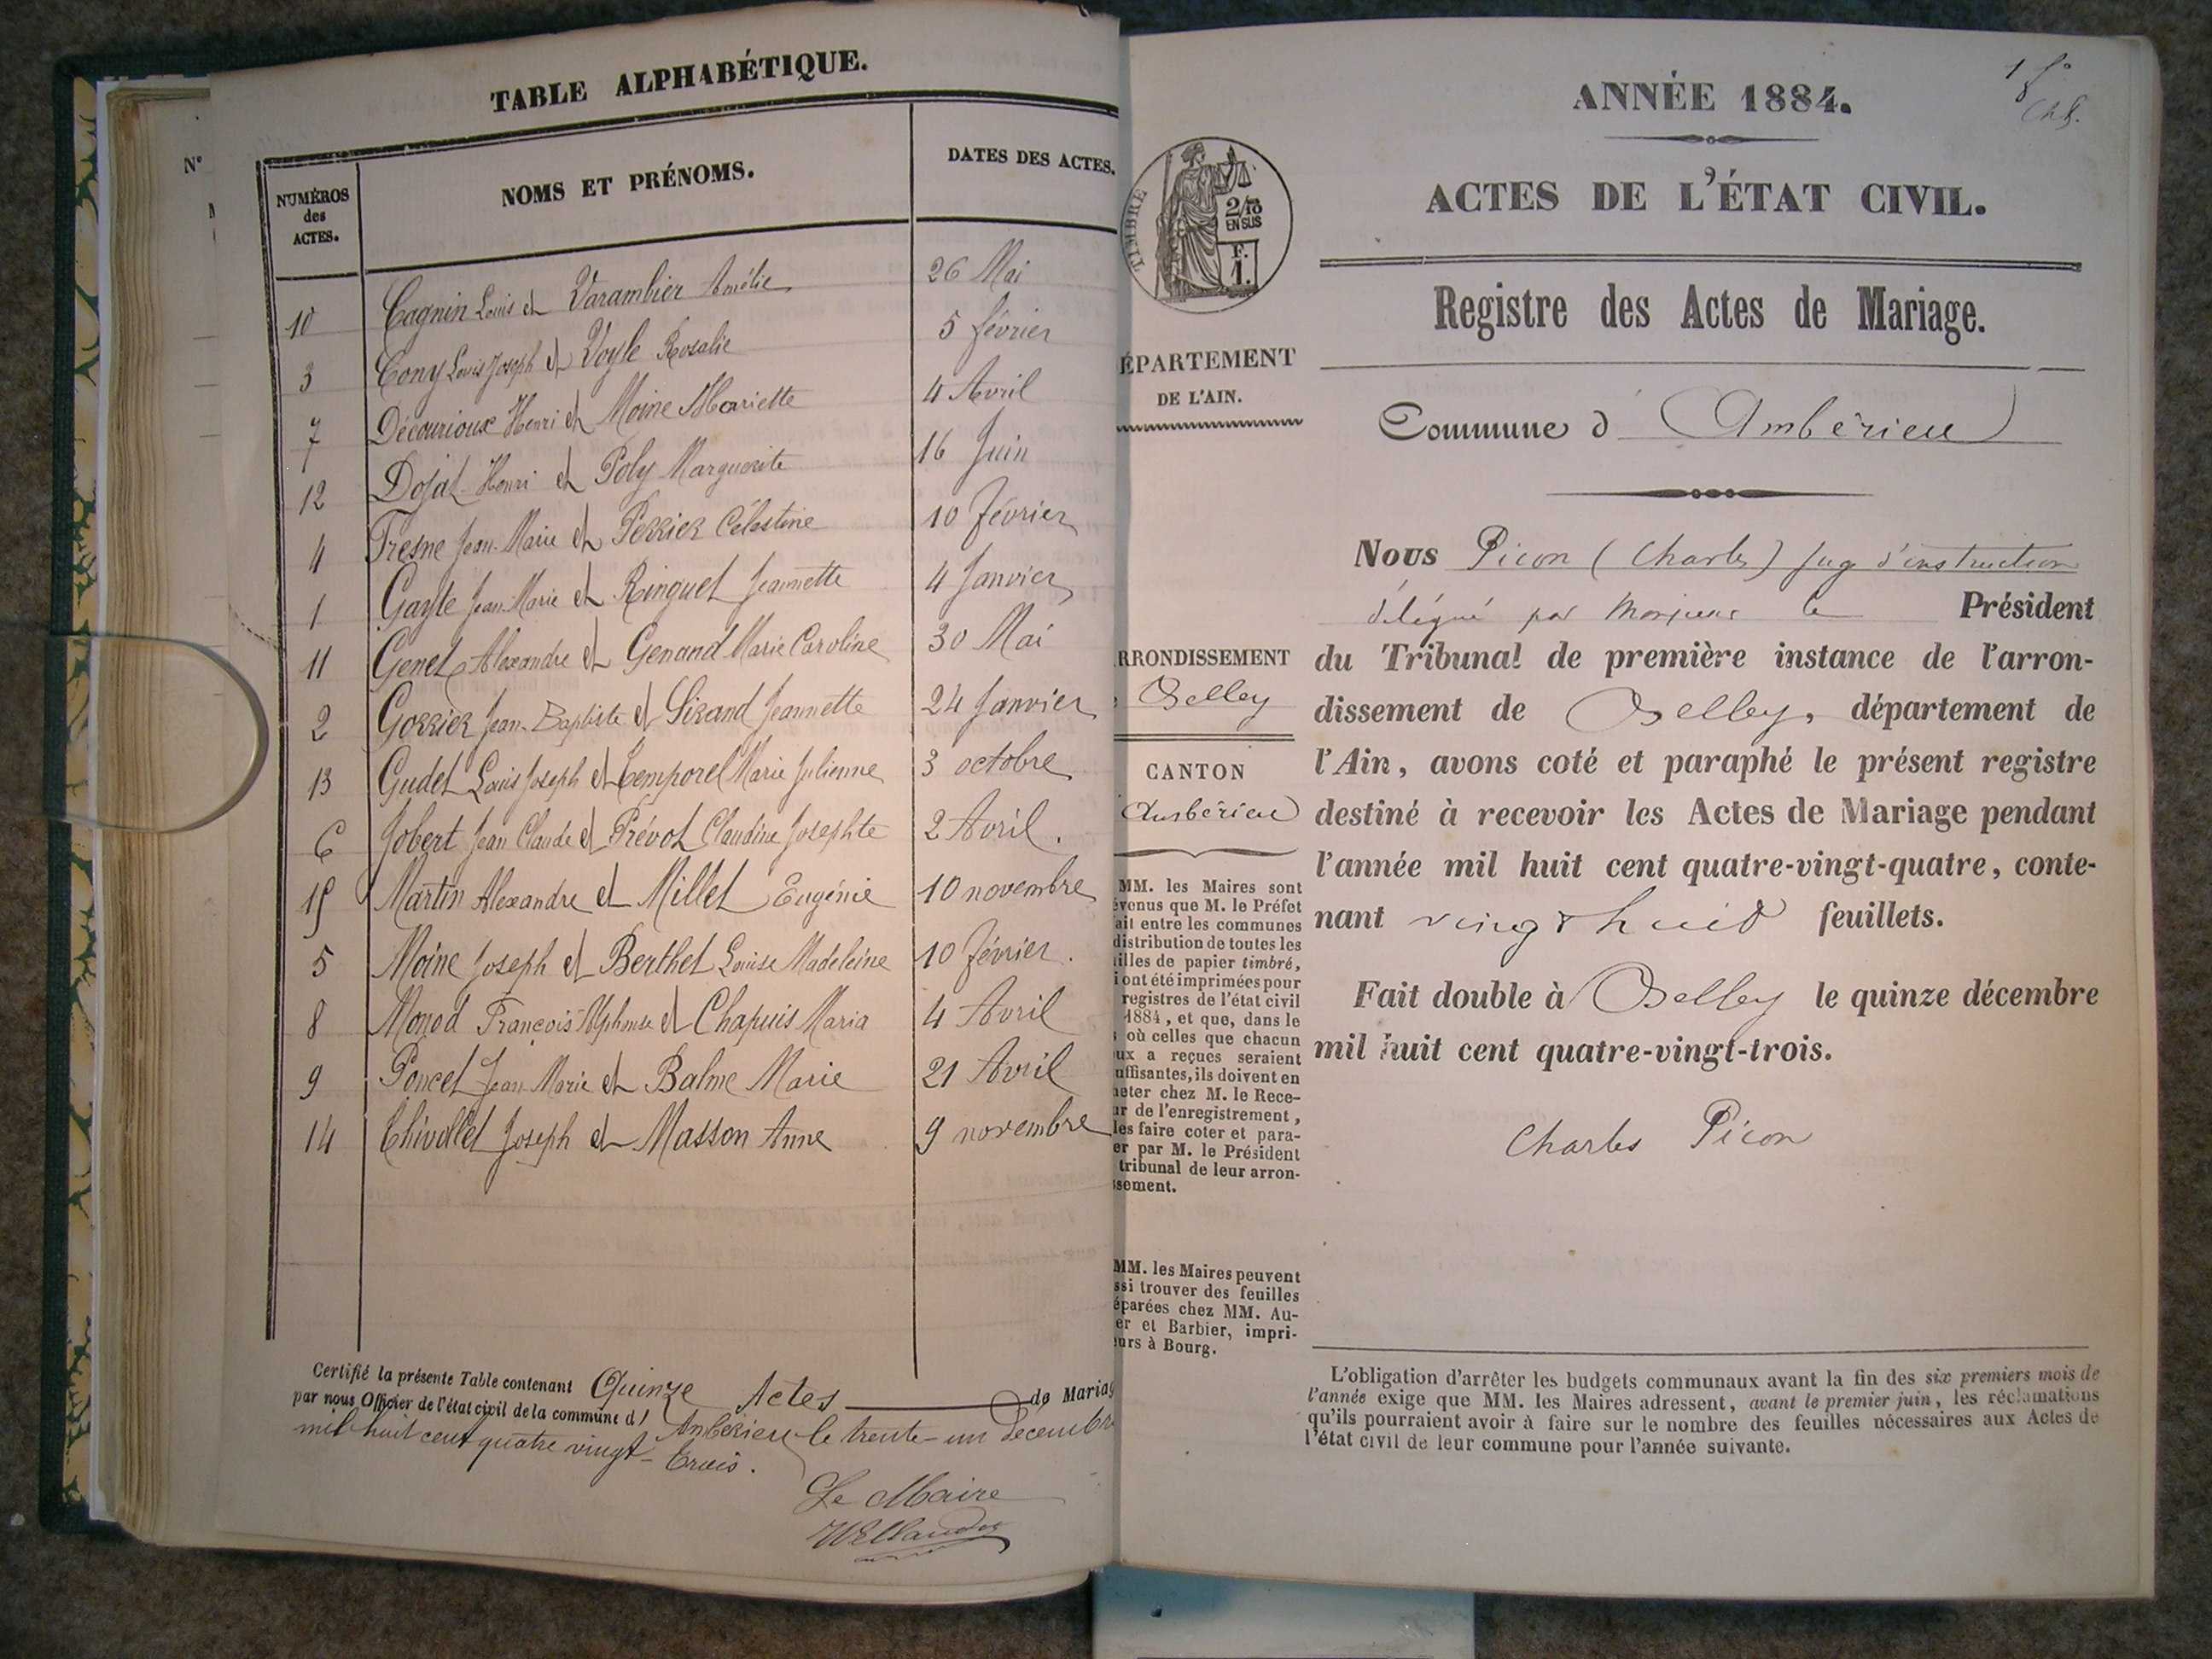 TABLE ALPHABÉTIQUE.
N°
NUMÉROS
des
ACTES.
NOMS ET PRÉNOMS.
DATES DES ACTES.
10 Cagnin Louis et Varambier Amélie 26 Mai
3 Cony Louis Joseph et Voyle Rosalie 5 février
7 Décourioux Henri et Moine Mariette 4 Avril
12 Dojat Henri et Poly Marguerite 16 Juin
4 Fresne Jean-Marie et Perrier Célestine 10 février
1 Gayte Jean-Marie et Ringuet Jeannette 4 Janvier
11 Genet Alexandre et Genand Marie Caroline 30 Mai
2 Gorrier Jean-Baptiste et Sirand Jeannette 24 Janvier
13 Gudet Louis Joseph et Temporel Marie Julienne 3 octobre
6 Jobert Jean Claude et Prévot Claudine Josephte 2 Avril.
15 Martin Alexandre et Millet Eugénie 10 novembre
5 Moine Joseph et Berthet Louise Madeleine 10 février.
8 Monod François Alphonse et Chapuis Maria 4 Avril
9 Poncet Jean-Marie et Balme Marie 21 Avril
14 Chivollet Joseph et Masson Anne 9 novembre
Certifié la présente Table contenant Quinze Actes de Mariag
par nous Officier de l'état civil de la commune d' Ambérieu le trente-un Décembr
mil huit cent quatre vingt-trois.
Le Maire
1 f°
ANNÉE 1884.
ACTES DE L'ÉTAT CIVIL.
Registre des Actes de Mariage.
TIMBRE
2/10
EN SUS
F.
1.
ÉPARTEMENT
DE L'AIN.
Commune d' Ambérieu
Nous Picon (Charles) juge d'instruction
délégué par Monsieur le Président
du Tribunal de première instance de l'arron-
dissement de Belley, département de
l'Ain, avons coté et paraphé le présent registre
destiné à recevoir les Actes de Mariage pendant
l'année mil huit cent quatre-vingt-quatre, conte-
nant vingt huit feuillets.
Fait double à Belley le quinze décembre
mil huit cent quatre-vingt-trois.
Charles Picon
RRONDISSEMENT
Belley
CANTON
Ambérieu
MM. les Maires sont
évenus que M. le Préfet
ait entre les communes
distribution de toutes les
illes de papier timbré,
i ont été imprimées pour
registres de l'état civil
1884, et que, dans le
s où celles que chacun
ux a reçues seraient
uffisantes, ils doivent en
heter chez M. le Rece-
ur de l'enregistrement,
les faire coter et para-
er par M. le Président
tribunal de leur arron-
ssement.
MM. les Maires peuvent
ssi trouver des feuilles
éparées chez MM. Au-
er et Barbier, impri-
eurs à Bourg.
L'obligation d'arrêter les budgets communaux avant la fin des six premiers mois de
l'année exige que MM. les Maires adressent, avant le premier juin, les réclamations
qu'ils pourraient avoir à faire sur le nombre des feuilles nécessaires aux Actes de
l'état civil de leur commune pour l'année suivante.